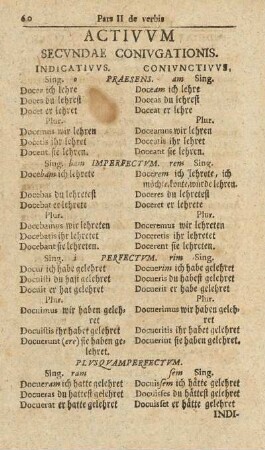 60 Pars II de verbis
ACTIVVM
SECVNDAE CONIVGATIONIS.
INDICATIVVS. CONIVNCTIVVS,
Sing. o PRAESENS. am Sing.
Doceo ich lehre Doceam ich lehre
Doces du lehrest Doceas du lehrest
Docet er lehret Doceat er lehre
Plur. Plur.
Docemus wir lehren Doceamus wir lehren
Docetis ihr lehret Doceatis ihr lehret
Docent sie lehren. Doceant sie lehren.
Sing. bam IMPERFECTVM. rem Sing.
Docebam ich lehrete Docerem ich lehrete, ich
möchte, konte, würde lehren.
Docebas du lehretest Doceres du lehretest
Docebat er lehrete Doceret er lehrete
Plur. Plur.
Docebamus wir lehreten Doceremus wir lehreten
Docebatis ihr lehretet Doceretis ihr lehretet
Docebant sie lehreten. Docerent sie lehreten.
Sing. i PERFECTVM. rim Sing.
Docui ich habe gelehret Docuerim ich habe gelehret
Docuisti du hast gelehret Docueris du habest gelehret
Docuit er hat gelehret Docuerit er habe gelehret
Plur. Plur.
Docuimus wir haben gelehret Docuerimus wir haben gelehret
Docuistis ihr habet gelehret Docueritis ihr habet gelehret
Docuerunt (ere) sie haben gelehret. Docuerint sie haben gelehret.
PLVSQVAMPERFECTVM.
Sing. ram sem Sing.
Docueram ich hatte gelehret Docuissem ich hätte gelehret
Docueras du hattest gelehret Docuisses du hättest gelehret
Docuerat er hatte gelehret Docuisset er hätte gelehret
INDI-